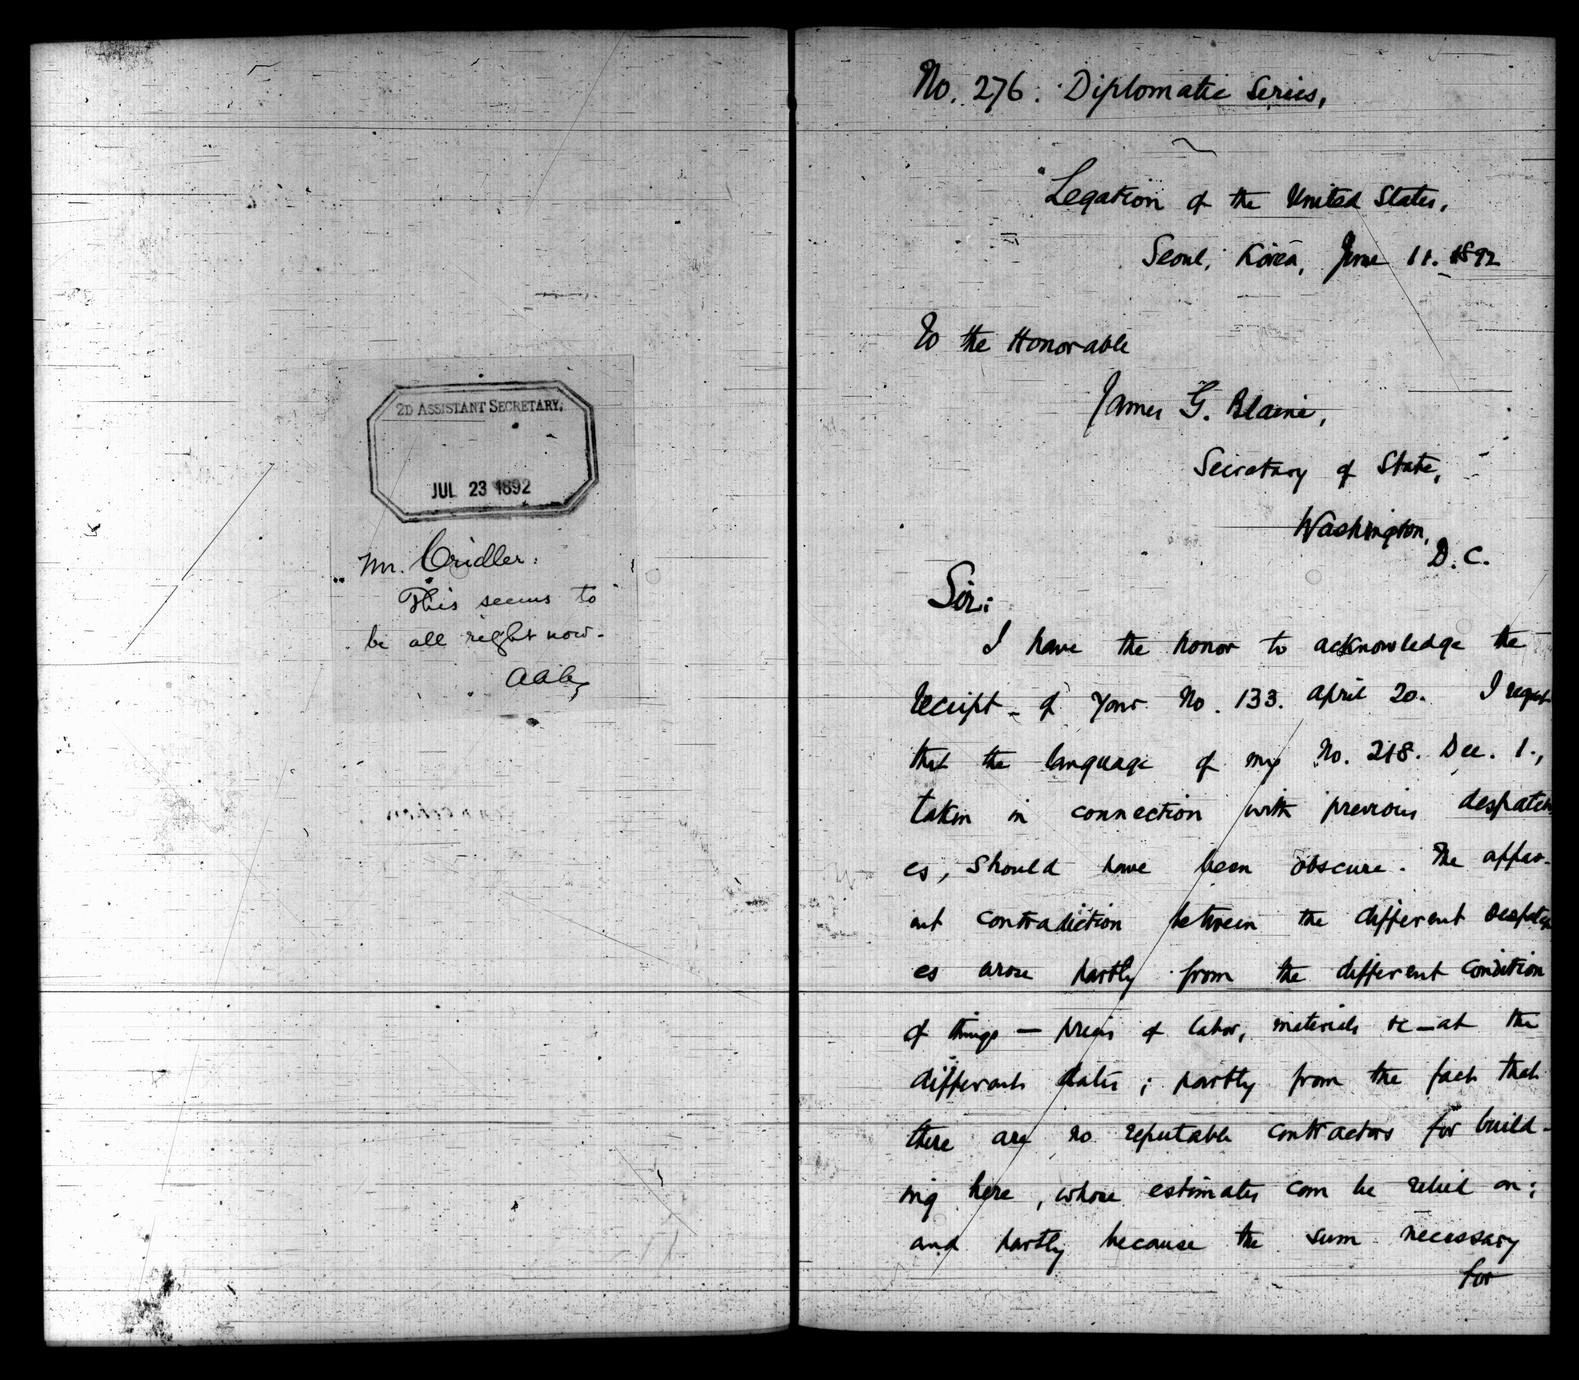 2D ASSISTANT SECRETARY,
JUL 23 1892
Mr. Cridler:
This seems to
be all right now.
AAA
No. 276. Diplomatic Series,
Legation of the United States,
Seoul, Korea, June 11. 1892
To the Honorable
James G. Blaine,
Secretary of State,
Washington,
D.C.
Sir:
I have the honor to acknowledge the
receipt of your No. 133. April 20. I regret
that the language of my No. 218. Dec. 1.,
taken in connection with previous despatch
es, should have been obscure. The appar-
ent contradiction between the different despatch
es arose partly from the different condition
of things — prices of labor, materials &c — at the
different dates; partly from the fact that
there are no reputable contractors for build-
ing here, whose estimates can be relied on;
and partly because the sum necessary
for